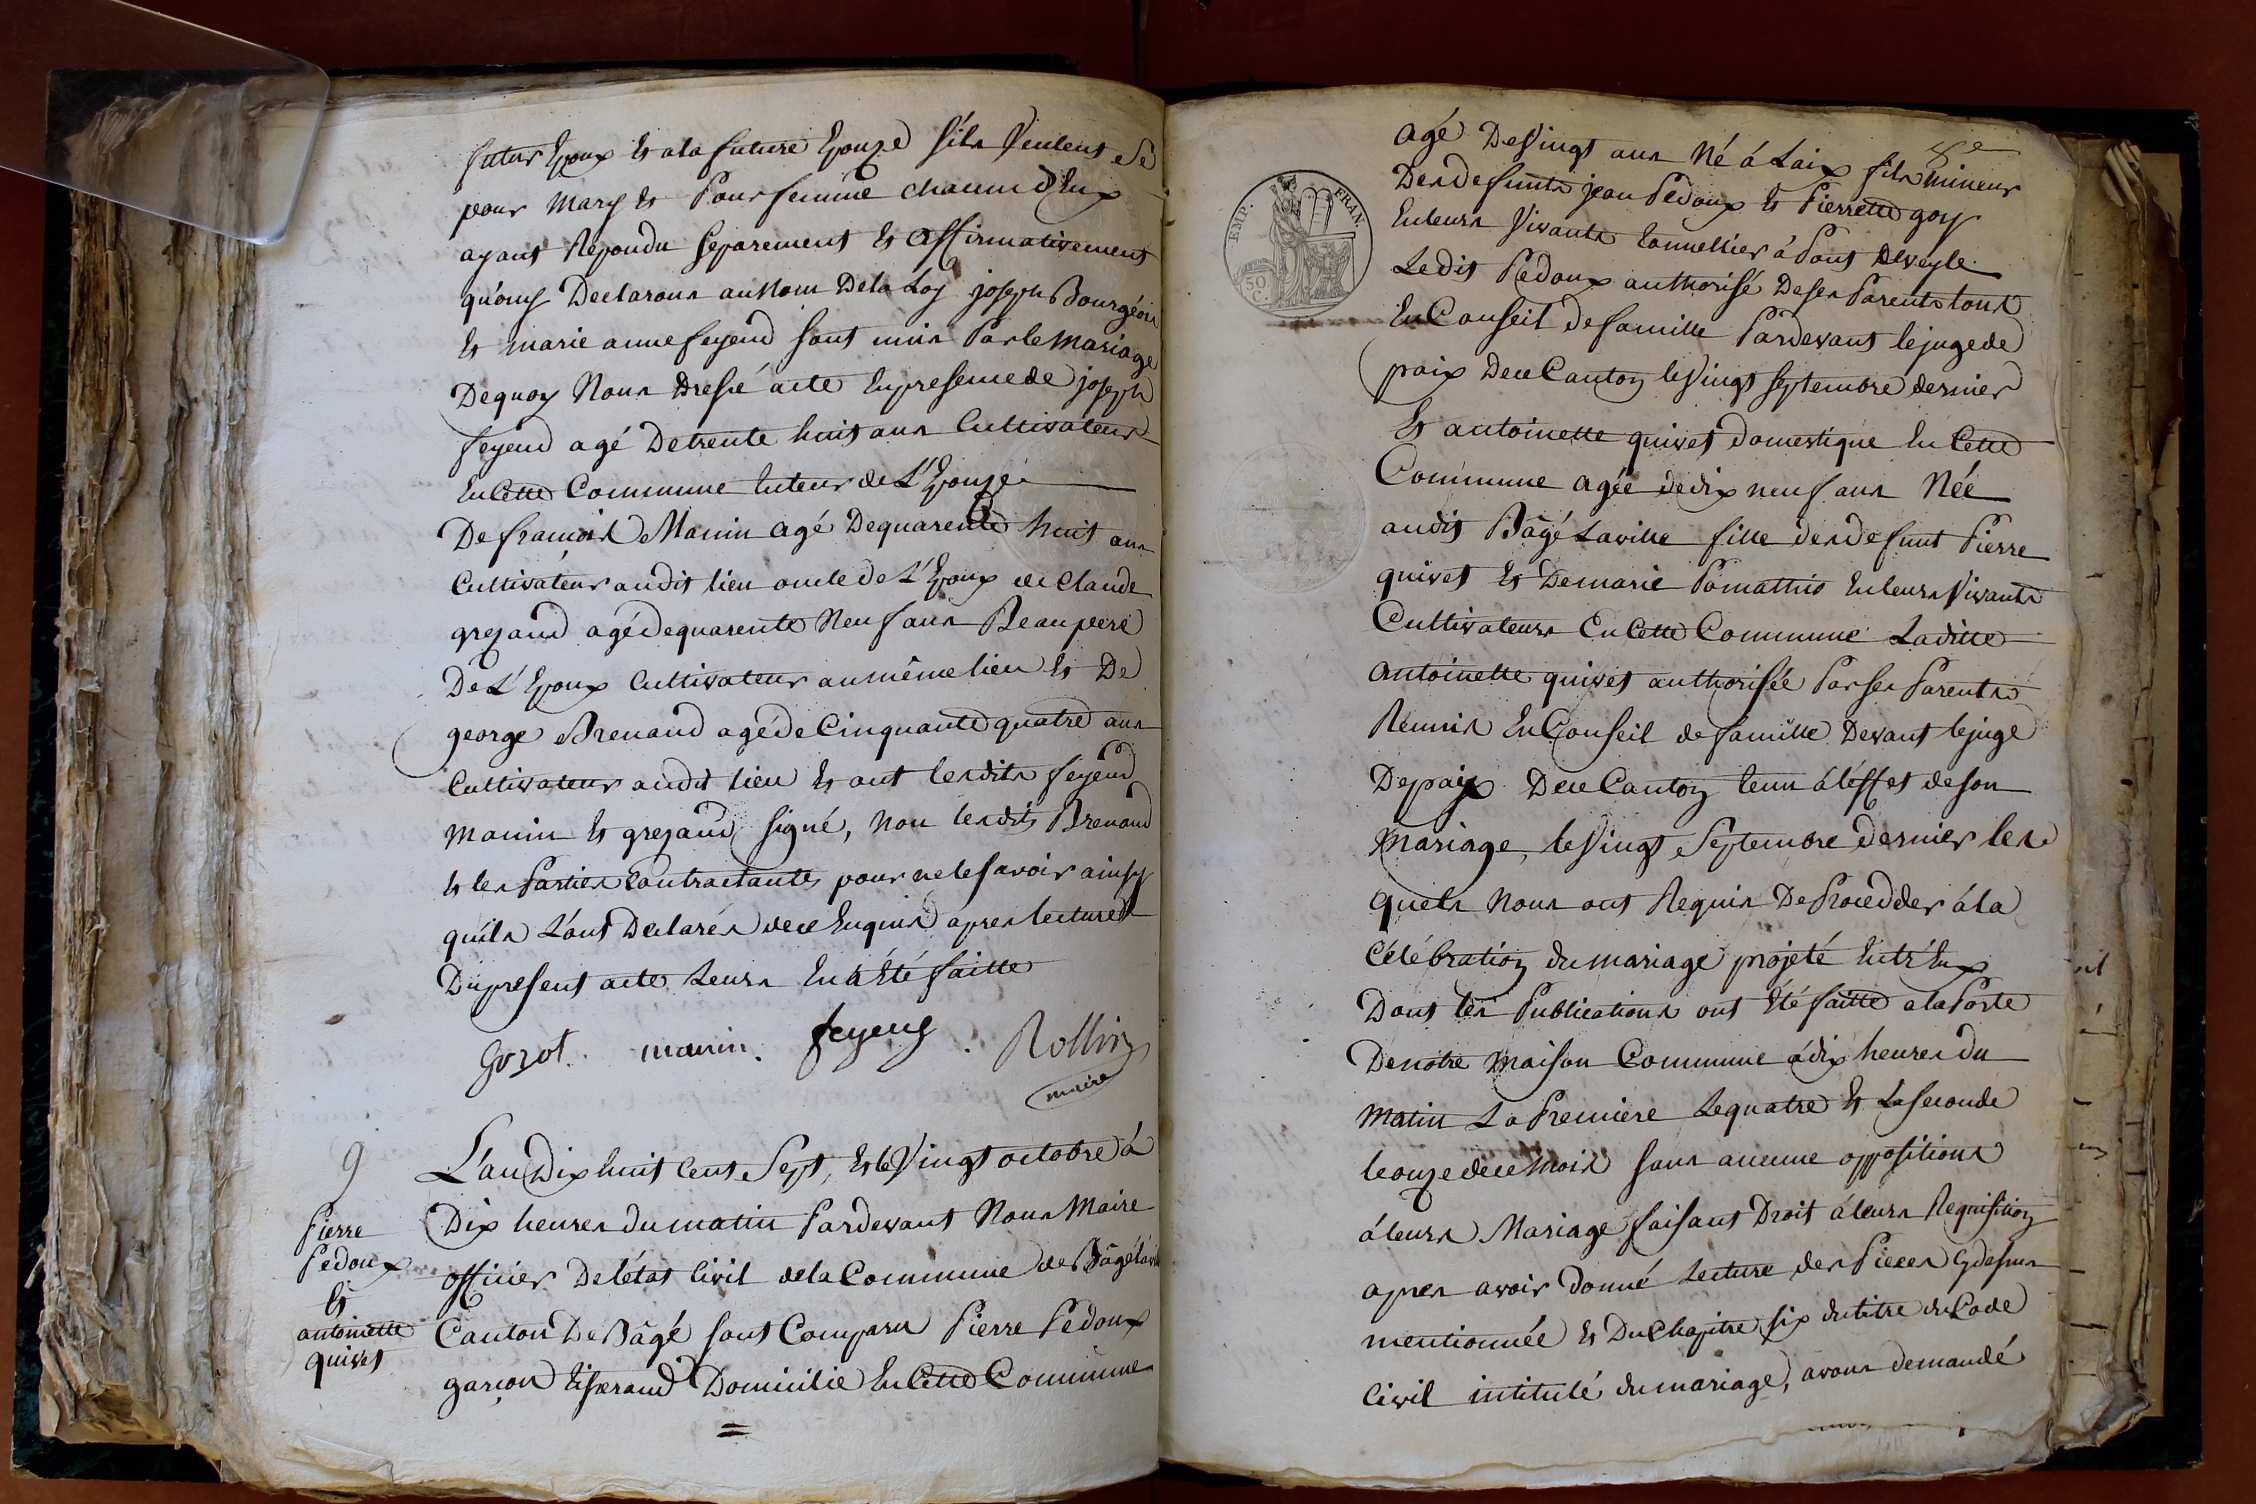 futur Epoux Et ala future Epouze s'ils Veulent Se
pour Mary Et Pour femme chacun d'Eux
ayant Repondu Separement Et affirmativement
qu'ouy Declarons au Nom De la Loy joseph Bourgéon
Et marie anne feyeud sont unis Par le Mariage
De quoy Nous Dressé acte En presence de joseph
feyeud agé De trente huit ans Cultivateur
En Cette Commune tuteur de L'Epouze
De francois Manin agé De quarente huit ans
Cultivateur audit lieu oncle de L'Epoux de Claude
grezaud agé de quarente Neuf ans Beau pere
De L'Epoux Cultivateur au même lieu Et De
george Brenaud agé de Cinquante quatre ans
Cultivateur audit lieu Et ont lesdits feyeud
manin Et grezaud signé, Non lesdits Brenaud
Et les Parties Contractantes pour ne le savoir ainsy
quils L'ont Declarés de ce Enquis apres lecture
Du present acte Leurs En a Eté faitte
manin. feyeud Rollin
maire
9
L'an Dix huit Cent Sept, Et le Vingt octobre à
Dix heures du matin Pardevant Nous Maire
officier De létat Civil de la Commune de Bâgé laville
Canton De Bâgé sont Comparu Pierre Pedoux
garçon tisserand Domicilié En Cette Commune
Pierre
Pedoux
Et
antoinette
quivet
agé De Vingt ans Né à Laix fils mineur
Des defunts jean Pedoux Et Pierrette goy
En leurs Vivants tonnellier à Pont deveyle
Ledit Pedoux authorisé De ses Parents tous
En Conseil de famille Pardevant le juge de
paix De ce Canton le Vingt Septembre dernier
Et antoinette quivet domestique En Cette
Commune agée de dix neuf ans Née
audit Bâgé Laville fille des defunt Pierre
quivet Et De marie Pomathio En leurs Vivants
Cultivateurs En Cette Commune Laditte
antoinette quivet authorisée Par ses Parents
Reunis En Conseil de famille Devant le juge
De paix De ce Canton tenu à l'éffet de son
Mariage, le Vingt Septembre dernier les
quels Nous ont Requis De Proceder à la
Célébration du mariage projeté Entr'Eux
Dont les Publications ont Eté faitte a la Porte
De notre Maison Commune à dix heures du
Matin La Premiere Le quatre Et La Seconde
le onze de ce mois sans aucune oppositions
à leurs Mariage faisant Droit à leurs Requisition
apres avoir Donné Lecture des Pieces Cy dessus
mentionnée Et Du Chapitre six du titre du Code
Civil intitulé du mariage, avons demandé
EMP. FRAN.
50
C.